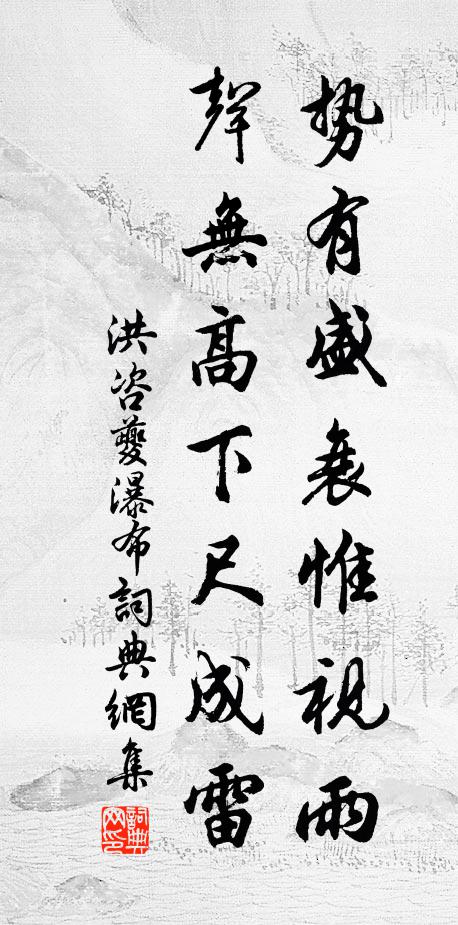 势有盛衰惟視雨
聲無高下尺成雷
洪咨夔瀑布詞典網集
詞典網印